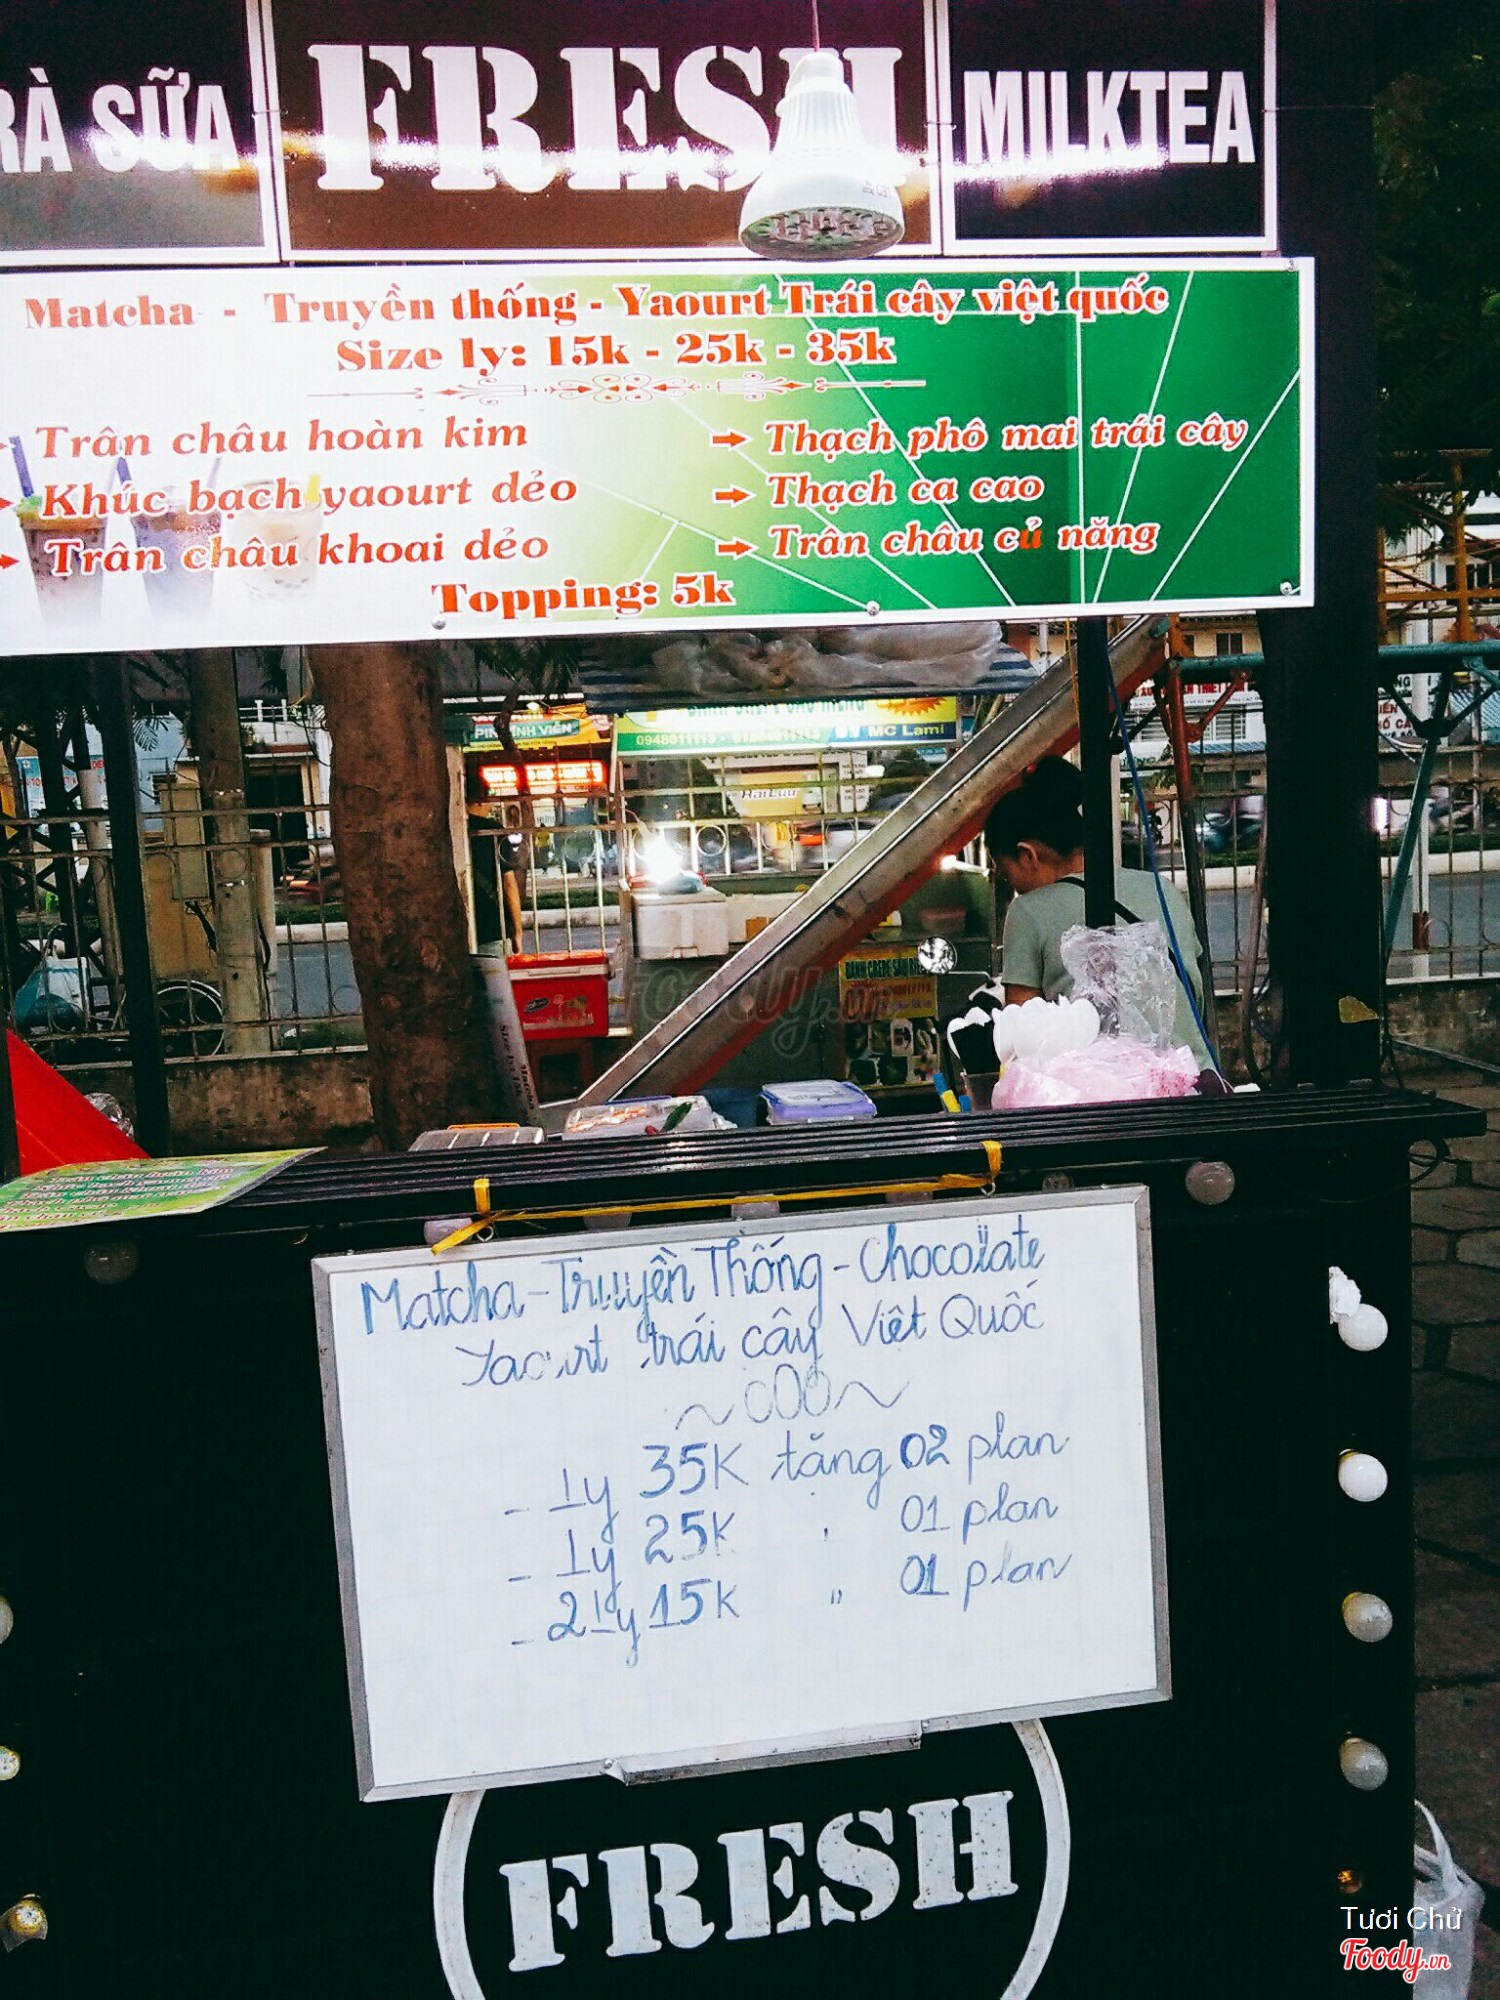 RÀ SỮA FRESH MILKTEA
Matcha - Truyền thống - Yaourt Trái cây việt quốc
Size ly: 15k - 25k - 35k
Trân châu hoàn kim
Thạch phô mai trái cây
Khúc bạch yaourt dẻo
Thạch ca cao
Trân châu khoai dẻo
Trân châu củ năng
Topping: 5k
MC Lami
Foody.vn
Matcha - Truyền Thống - Chocolate
Yaourt trái cây Việt Quốc
- 1y 35K tặng 02 plan
- 1y 25K " 01 plan
- 2 ly 15K " 01 plan
FRESH
Tươi Chử
Foody.vn